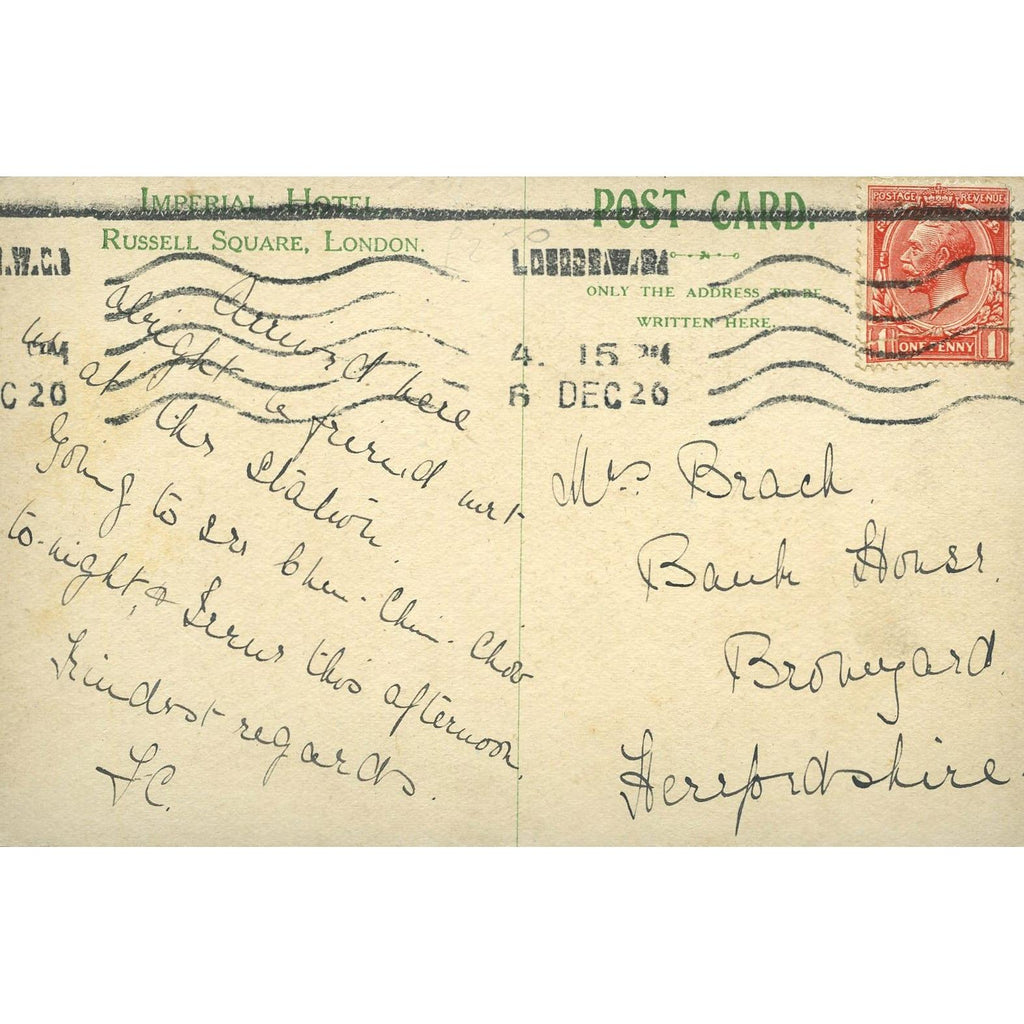 IMPERIAL HOTEL
RUSSELL SQUARE, LONDON.
Arrived here
alright & friend met
at the station.
Going to see Chu-Chin-Chow
to-night, & this afternoon.
Kindest regards.
POST CARD.
ONLY THE ADDRESS TO BE
WRITTEN HERE.
POSTAGE REVENUE
1 ONE PENNY 1
.W.C.1
C 20
LONDON.W.C.1
4. 15 PM
6 DEC 20
Mrs Brach.
Bank House.
Bromyard.
Herefordshire.